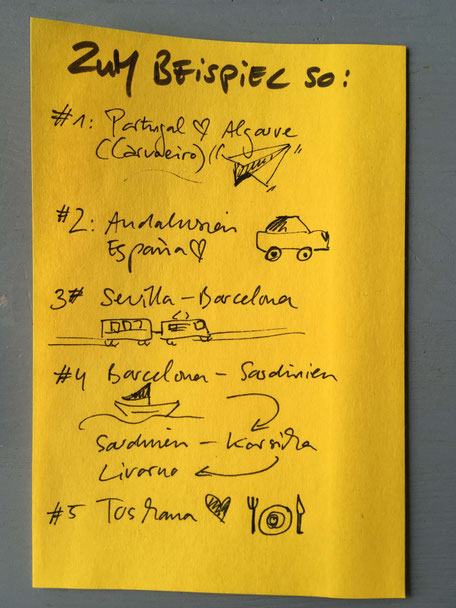 Zum Beispiel so:
#1: Portugal ♡ Algarve
(Carvoeiro)
#2: Andalusien
España ♡
3# Sevilla – Barcelona
#4 Barcelona – Sardinien
Sardinien – Korsika
Livorno
#5 Toskana